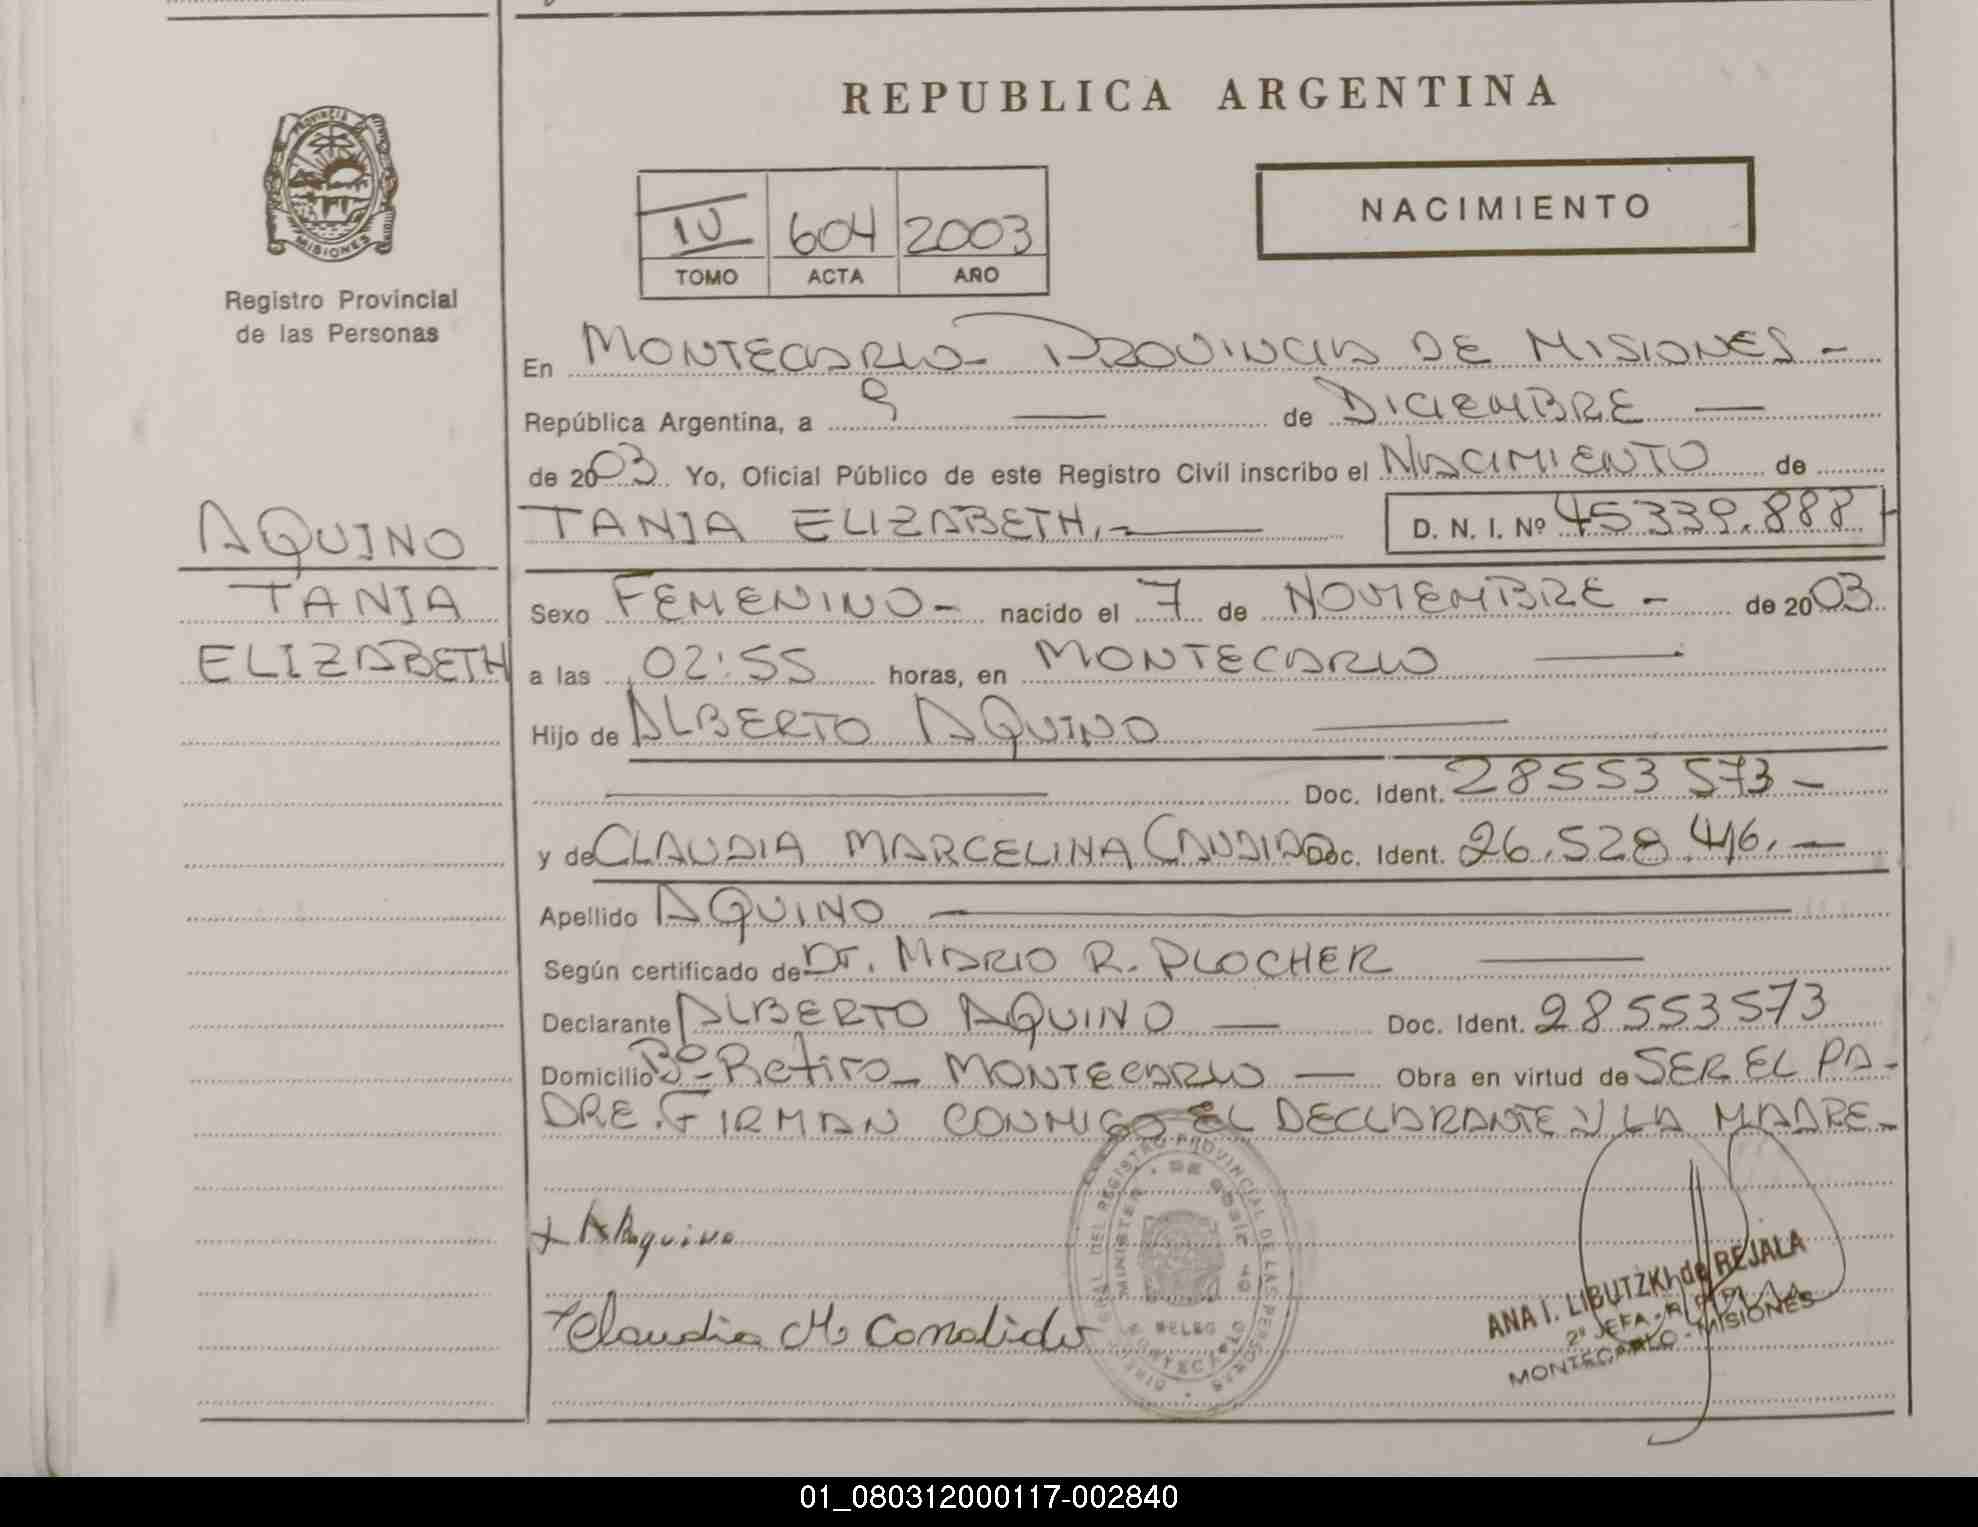 REPUBLICA ARGENTINA
PROVINCIA DE
MISIONES
Registro Provincial
de las Personas
IV 604 2003
TOMO ACTA AÑO
NACIMIENTO
En MONTECARLO- PROVINCIA DE MISIONES -
República Argentina, a 9 — de DICIEMBRE —
de 2003 Yo, Oficial Público de este Registro Civil inscribo el NACIMIENTO de
TANIA ELIZABETH.- D. N. I. Nº 45339.888
AQUINO
TANIA
ELIZABETH
Sexo FEMENINO- nacido el 7 de NOVIEMBRE - de 2003
a las 02:55 horas, en MONTECARLO —
Hijo de ALBERTO AQUINO —
— Doc. Ident. 28553573 -
y de CLAUDIA MARCELINA CANDIDO Doc. Ident. 26.528.416. -
Apellido AQUINO —
Según certificado de Dr. MARIO R. PLOCHER —
Declarante ALBERTO AQUINO — Doc. Ident. 28553573
Domicilio Bº- Retiro - MONTECARLO — Obra en virtud de SER EL PA-
DRE. FIRMAN CONMIGO EL DECLARANTE Y LA MADRE-
Aquino
Claudia M. Candido
DEL REGISTRO PROVINCIAL DE LAS PERSONAS
ANA I. LIBUTZKI de REJALA
2º JEFA -
MONTECARLO - MISIONES
01_080312000117-002840